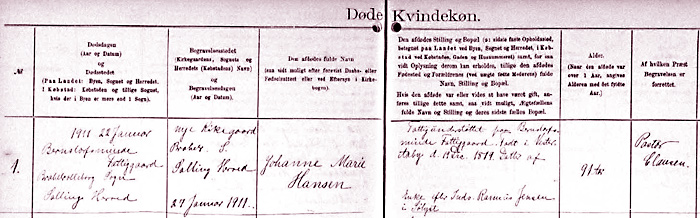 Døde Kvindekøn.
№
Dødsdagen
(Aar og Datum)
og
Dødsstedet
(Paa Landet: Byen, Sognet og Herredet. I
Købstad: Købstaden og tillige Sognet,
hvis der i Byen er mere end 1 Sogn).
Begravelsesstedet
(Kirkegaardens, Sognets og
Herredets (Købstadens) Navn)
og
Begravelsesdagen
(Aar og Datum).
Den afdødes fulde Navn
(saa vidt muligt efter forevist Daabs- eller
Fødselsattest eller ved Eftersyn i Kirke-
bogen).
Den afdødes Stilling og Bopæl (ɔ: sidste faste Opholdssted,
betegnet paa Landet ved Byen, Sognet og Herredet, i Køb-
stad ved Købstaden, Gaden og Husnummeret) samt, for saa
vidt Oplysning derom kan erholdes, tillige den afdødes
Fødested og Forældrenes (ved uægte fødte Moderens) fulde
Navn, Stilling og Bopæl.
Hvis den afdøde var eller vides at have været gift, an-
føres tillige dette samt, saa vidt muligt, Ægtefællens
fulde Navn og Stilling og deres sidste fælles Bopæl.
Alder.
(Naar den afdøde var
over 1 Aar, angives
Alderen med det fyldte
Aar.)
Af hvilken Præst
Begravelsen er
forrettet.
1.
1911 22 Januar
Bernstofsminde
Fattiggaard
Sogn
Sallinge Herred
nye Kirkegaard
Brahe
Salling Herred
27 Januar 1911.
Johanne Marie
Hansen
Fattigunderstøttet paa Bernstofs-
minde Fattiggaard. Født i
d. 1819. Datter af
Enke efter Rasmus Jensen
i
91 Aar
Pastor
Clausen.